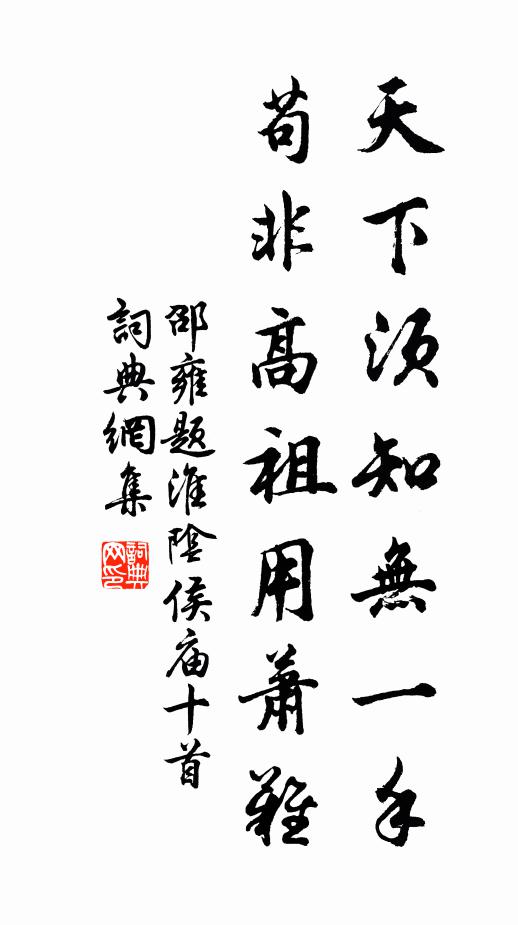 天下須知無一手
苟非高祖用蕭難
邵雍題淮陰侯庙十首
詞典網集
詞典
网印